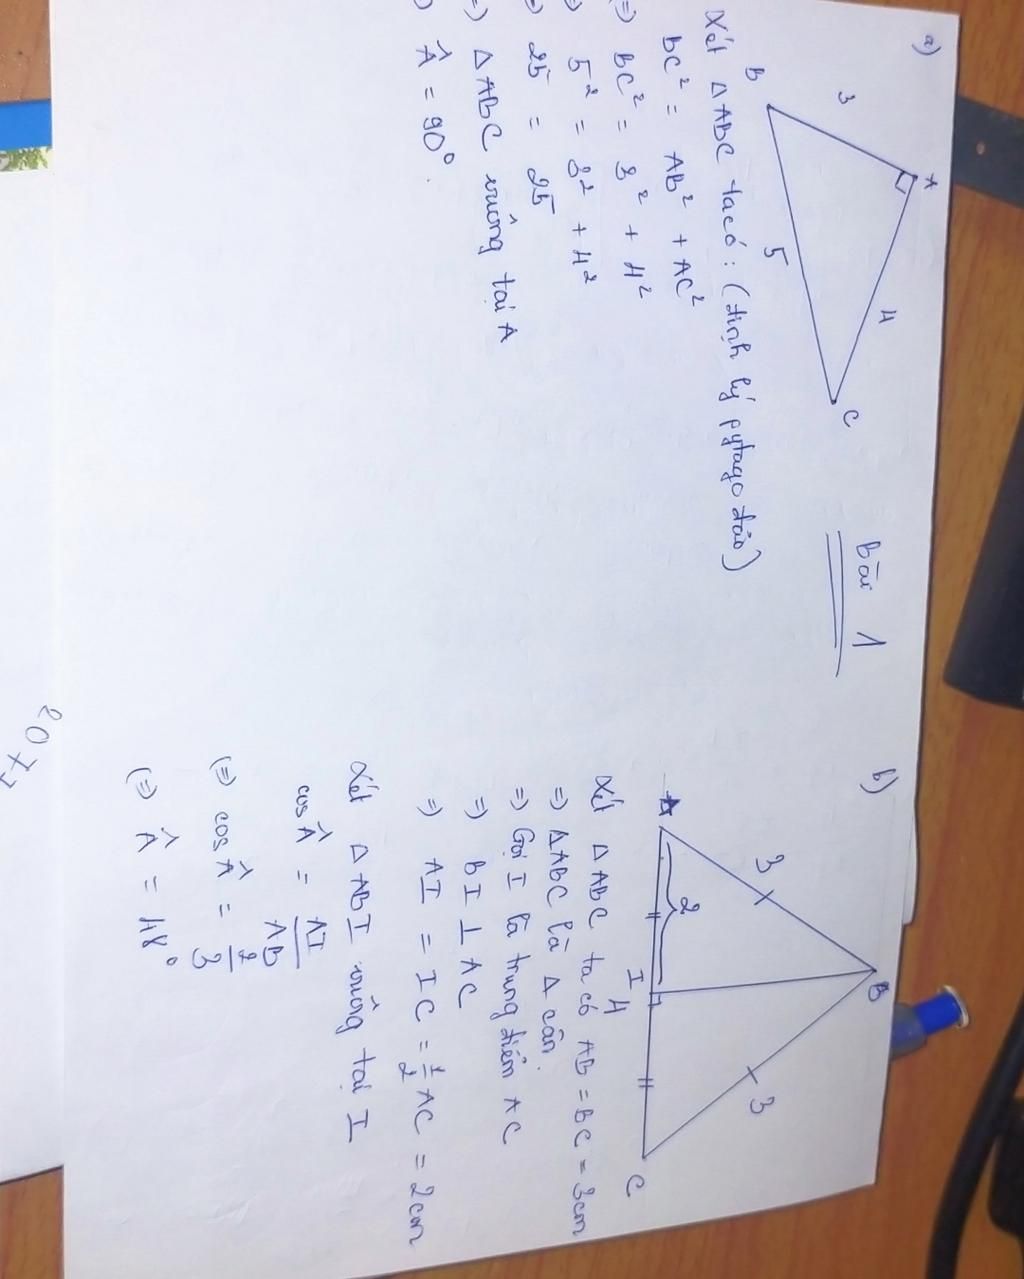 Bài 1
a)
A
3
4
B
5
C
Xét Δ ABC ta có: (định lý pytago đảo)
BC² = AB² + AC²
(=) BC² = 3² + 4²
5² = 3² + 4²
25 = 25
=) Δ ABC vuông tại A
 = 90°.
b)
B
3
3
2
A
I
4
C
Xét Δ ABC ta có AB = BC = 3cm
=) ΔABC là Δ cân.
=) Gọi I là trung điểm AC
=) BI ⊥ AC
=) AI = IC = 1/2 AC = 2cm
Xét Δ ABI vuông tại I
cos  = AI/AB
(=) cos  = 2/3
(=)  = 48°